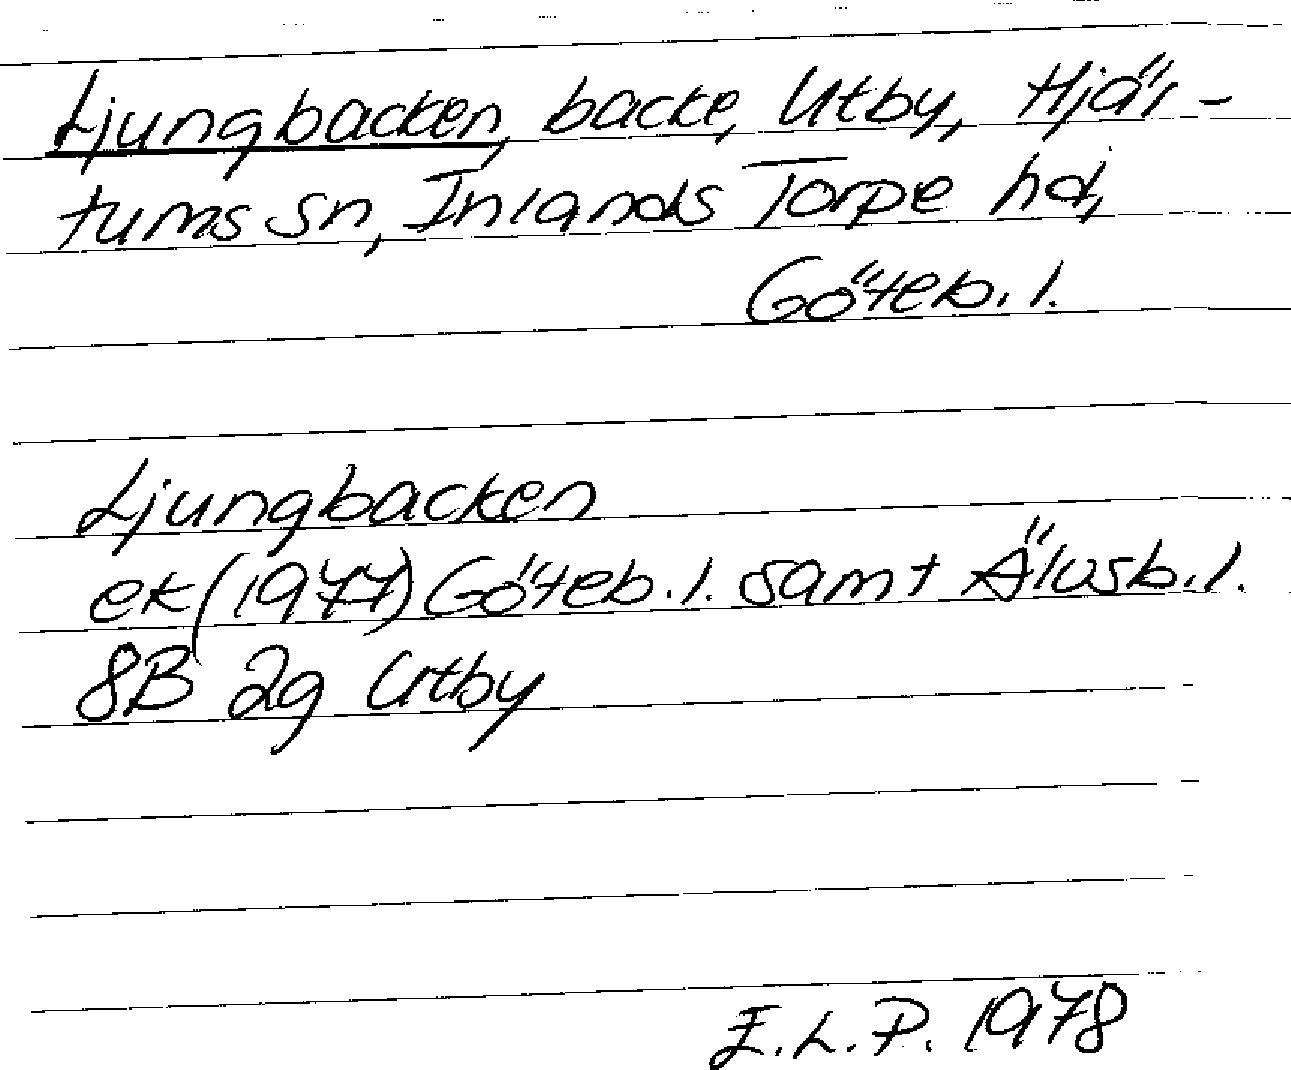 Ljungbacken, backe, Utby, Hjär-
tums sn, Inlands Torpe hd,
Göteb. l.
Ljungbacken
ek (1977) Göteb. l. samt Älvsb. l.
8B 2g Utby
E.L.P. 1978